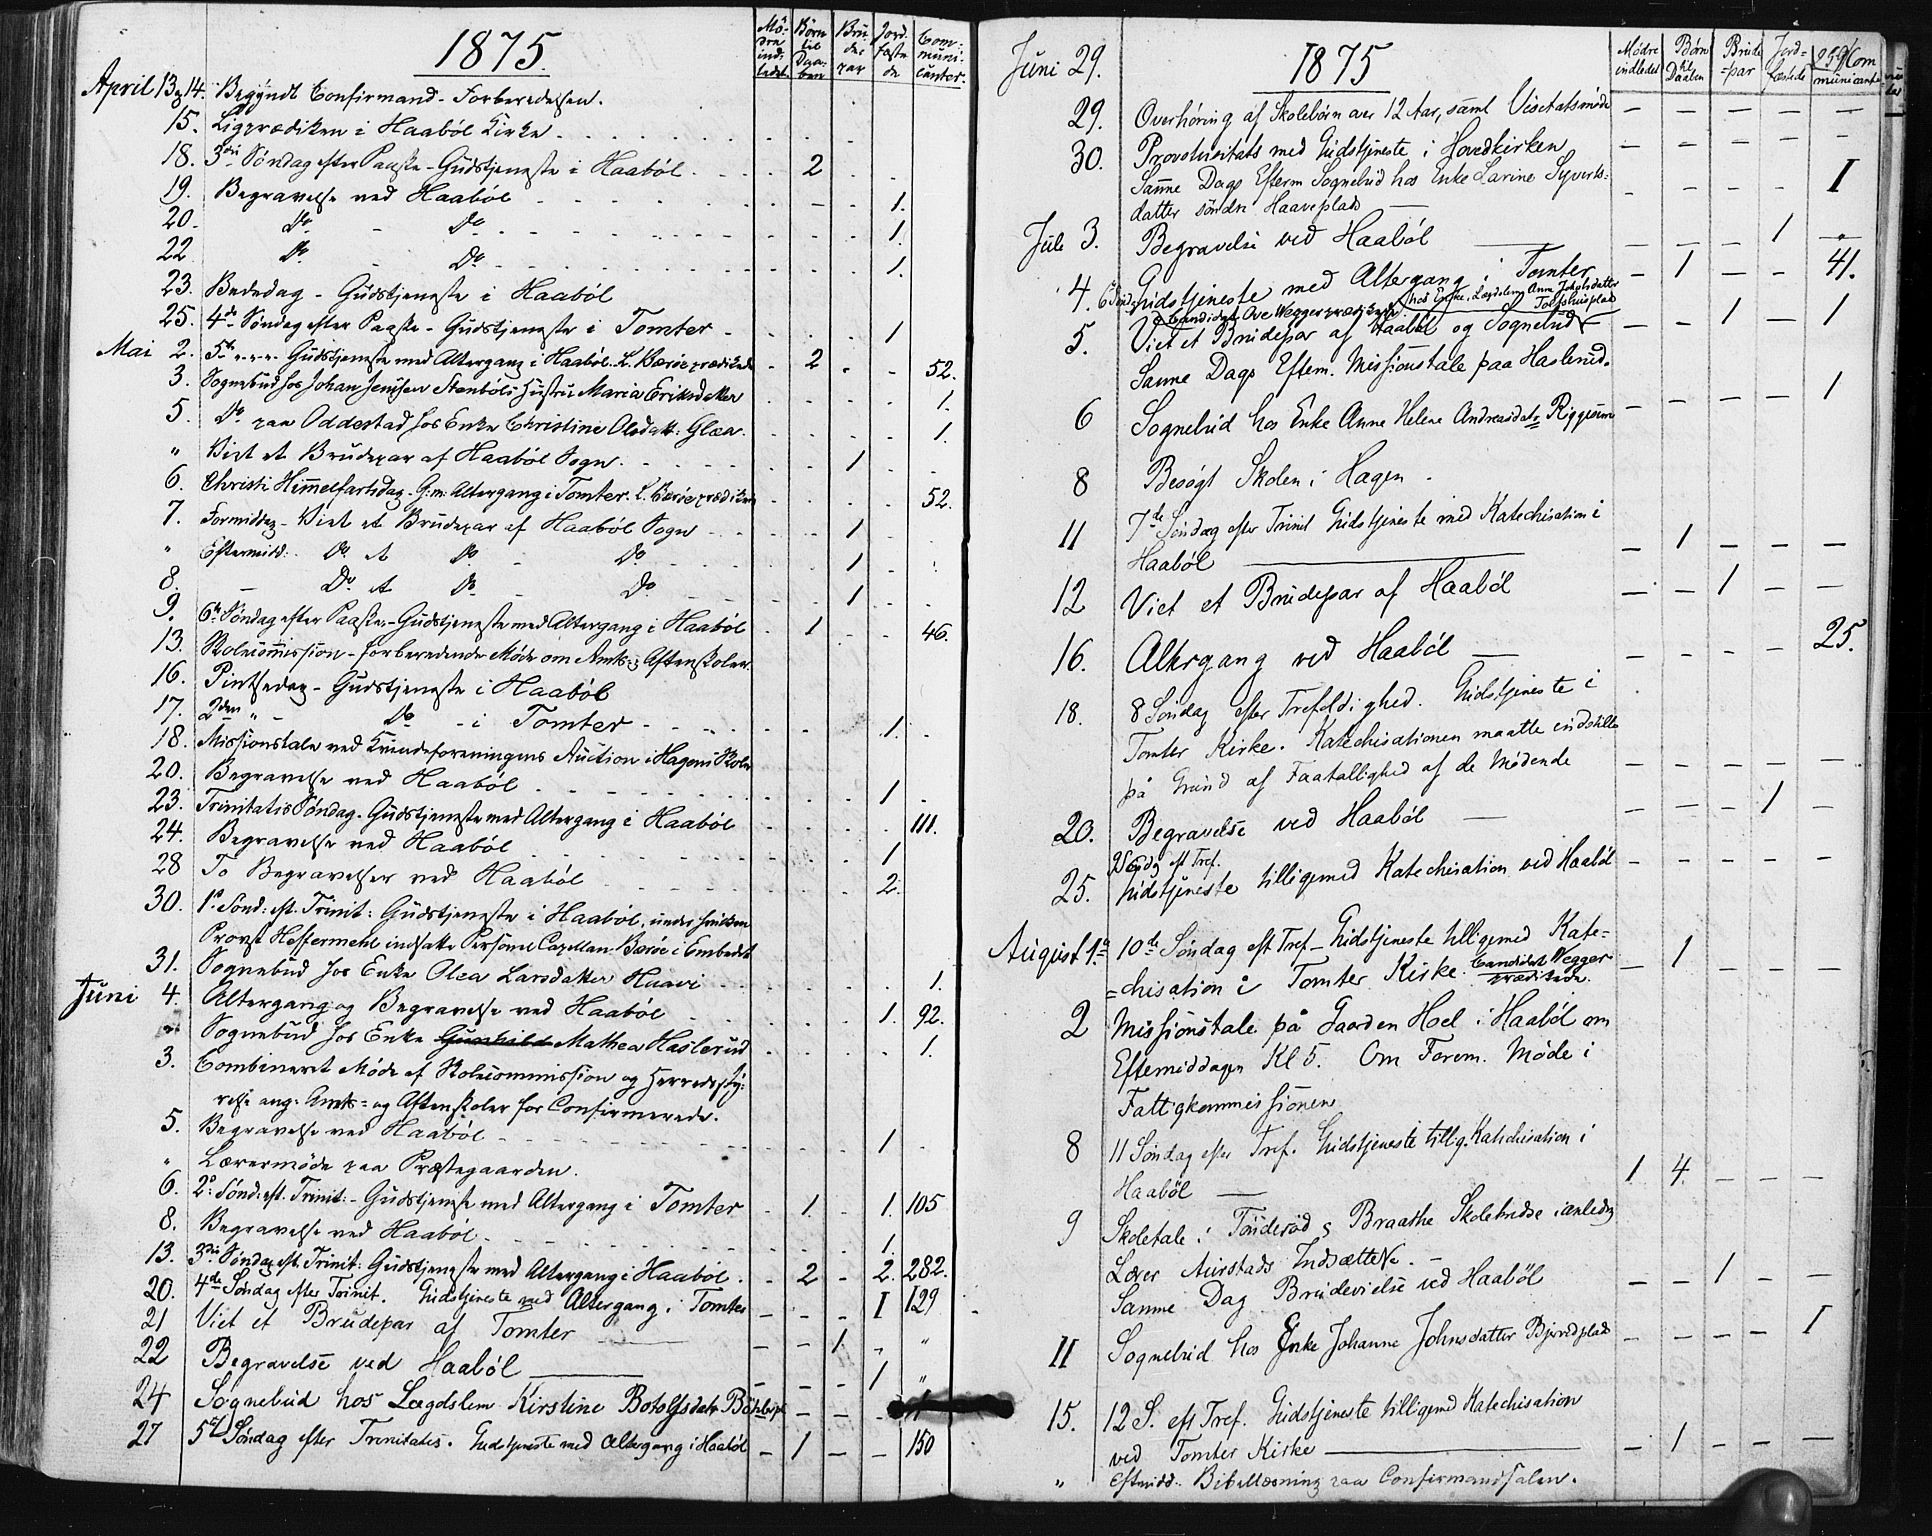 1875.
Mö- dre ind- ledet
Börn til Daa- ben
Bru- de- par
Jord- fæste- de
Com- muni- canter.
April 13 & 14. Begyndt Confirmand-Forberedelsen.
15. Ligprædiken i Haaböl Kirke
18. 3die Söndag efter Paaske - Gudstjeneste i Haaböl 2
19. Begravelse ved Haaböl 1.
20. Do Do 1.
22 Do Do 1.
23. Bededag - Gudstjeneste i Haaböl
25. 4de Söndag efter Paaske - Gudstjeneste i Tomter 1
Mai 2. 5te " " " Gudstjeneste med Altergang i Haaböl. K. Barøe prædikede 2 52.
3. Sognebud hos Johan Jensen Stenböls Hustru Maria Eriksdatter 1.
5. Do paa Oddestad hos Enke Christine Olsdatt: Glæa. 1.
" Viet et Brudepar af Haaböl Sogn. 1
6. Christi Himmelfartsdag. G: m: Altergang i Tomter. K. Barøe prædikede 52.
7. Formiddag - Viet et Brudepar af Haaböl Sogn 1
" Eftermidd: Do et Do Do 1
8. Do et Do Do 1
9. 6te Söndag efter Paaske - Gudstjeneste med Altergang i Haaböl 1 46.
13. Skolecommission - forberedende Møde om Amts- & Aftenskoler
16. Pintsedag - Gudstjeneste i Haaböl
17. 2den " Do i Tomter 1.
18. Missionstale ved Kvindeforeningens Auction i Hagens Skole
20. Begravelse ved Haaböl 1
23. Trinitatis Söndag. Gudstjeneste med Altergang i Haaböl 111.
24. Begravelse ved Haaböl 1
28 To Begravelser ved Haaböl 2.
30. 1ste Sönd: eft. Trinit: Gudstjeneste i Haaböl, under hvilken
Provst Hestermehl indsatte Personel Capellan Barøe i Embedet
31. Sognebud hos Enke Olea Larsdatter Haavi 1.
Juni 4. Altergang og Begravelse ved Haaböl 1. 92.
" Sognebud hos Enke Gunhild Mathea Haslerud 1.
3. Combineret Møde af Skolecommission og Herredssty-
relse ang. Amts- og Aftenskoler for Confirmerede.
5. Begravelse ved Haaböl 1
" Lærermöde paa Præstegaarden.
6. 2den Sönd: eft. Trinit: - Gudstjeneste med Altergang i Tomter 1. 1. 105
8. Begravelse ved Haaböl. 1.
13. 3die Söndag eft. Trinit: Gudstjeneste med Altergang i Haaböl. 2 2. 282.
20. 4de Søndag efter Trinit. Gudstjeneste med Altergang i Tomter 1 129
21 Viet et Brudepar af Tomter 1. "
22 Begravelse ved Haaböl 1 "
24 Sognebud hos Lægdslem Kirstine Botolfsdatr
27 5te Söndag efter Trinitatis. Gudstjeneste med Altergang i Haaböl 1 150
1875
Mødre indledet
Børn til Daaben
Brude- par
Jord- fæstede
Com municanter
Juni 29.
29. Overhøring af Skolebørn over 12 Aar, samt Visitatsmøde
30. Provstvisitats med Gudstjeneste i Hovedkirken
Samme Dags Efterm Sognebud hos Enke Larine Syverts- 1
datter söndre Haaveplads
Jule 3. Begravelse ved Haaböl 1
4. 6te Sönd. Gudstjeneste med Altergang i Tomter 1 41.
Candidat Ove Wegger prædikede
hos Enke, Lægdslem Anne
5. Viet et Brudepar af Haaböl og Sognebud 1 1
Samme Dags Efterm. Missionstale paa Haslerud.
6 Sognebud hos Enke Anne Helene Andreasdatr Riggesum 1
8 Besøgt Skolen i Hagen.
11 7de Søndag efter Trinit Gudstjeneste med Katechisation i
Haaböl 1
12 Viet et Brudepar af Haaböl 1
16. Altergang ved Haaböl 25.
18. 8 Søndag efter Trefoldighed. Gudstjeneste i
Tomter Kirke. Katechisationen maatte indstilles
på Grund af Faatallighed af de Mødende
20. Begravelse ved Haaböl 1
9 Søndg eft Tref.
25. Gudstjeneste tilligemed Katechisation ved Haaböl
August 1ste 10de Søndag eft Tref - Gudstjeneste tilligemed Kate-
chisation i Tomter Kirke. Candidat Wegger prædikede. 1
2 Missionstale på Gaarden Hoel i Haaböl om
Eftermiddagen Kl 5. Om Form. Møde i
Fattigkommissionen
8 11 Søndag efter Tref. Gudstjeneste tillig. Katechisation i
Haaböl 1. 4.
9 Skoletale i Tønderød & Braathe Skolekredse i anledng
Lærer Aurstads Indsættelse.
Samme Dag Brudevielse ved Haaböl 1
11 Sognebud hos Enke Johanne Johnsdatter 1
15. 12 S. eft Tref. Gudstjeneste tilligemed Katechisation
ved Tomter Kirke 1
" Eftmidd. Bibellæsning paa Confirmandsalen.